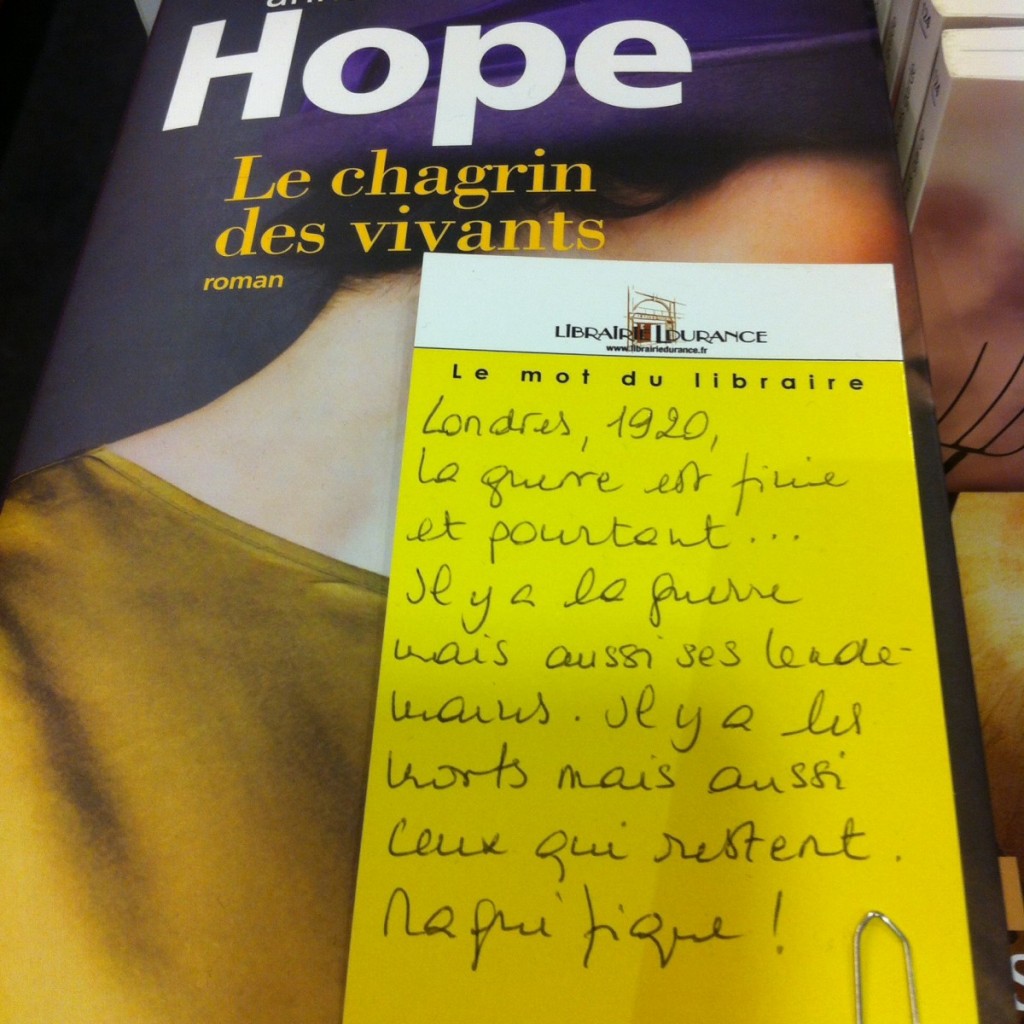 Hope
Le chagrin
des vivants
roman
LIBRAIRIE DURANCE
www.librairiedurance.fr
Le mot du libraire
Londres, 1920,
La guerre est finie
et pourtant...
Il y a la guerre
mais aussi ses lende-
mains. Il y a les
morts mais aussi
ceux qui restent.
Magnifique !